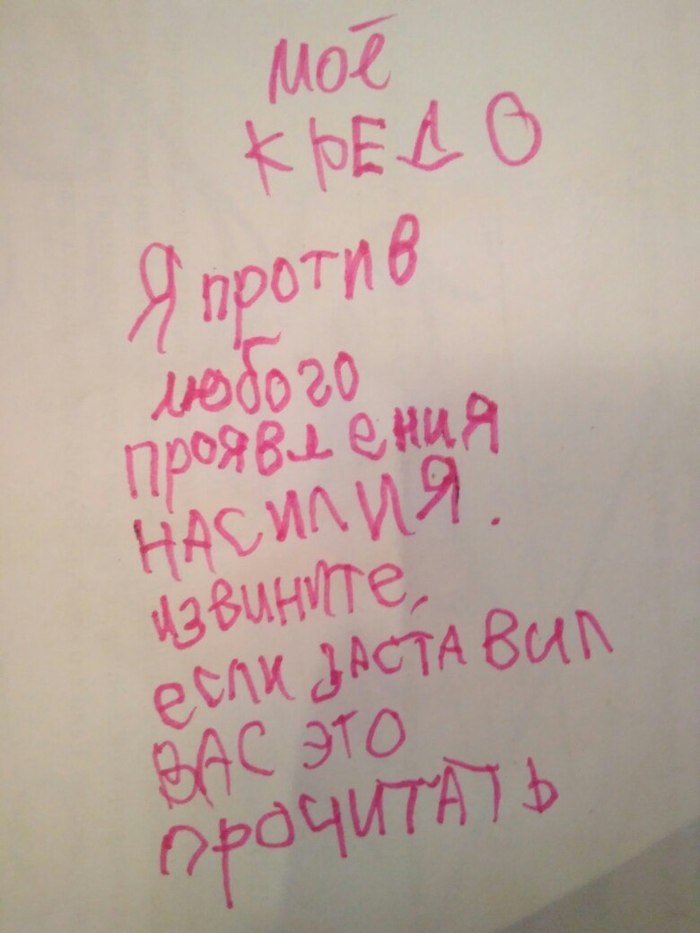 моё
КРЕДО
Я против
любого
проявления
НАСИЛИЯ.
извините,
если заставил
ВАС ЭТО
ПРОЧИТАТЬ